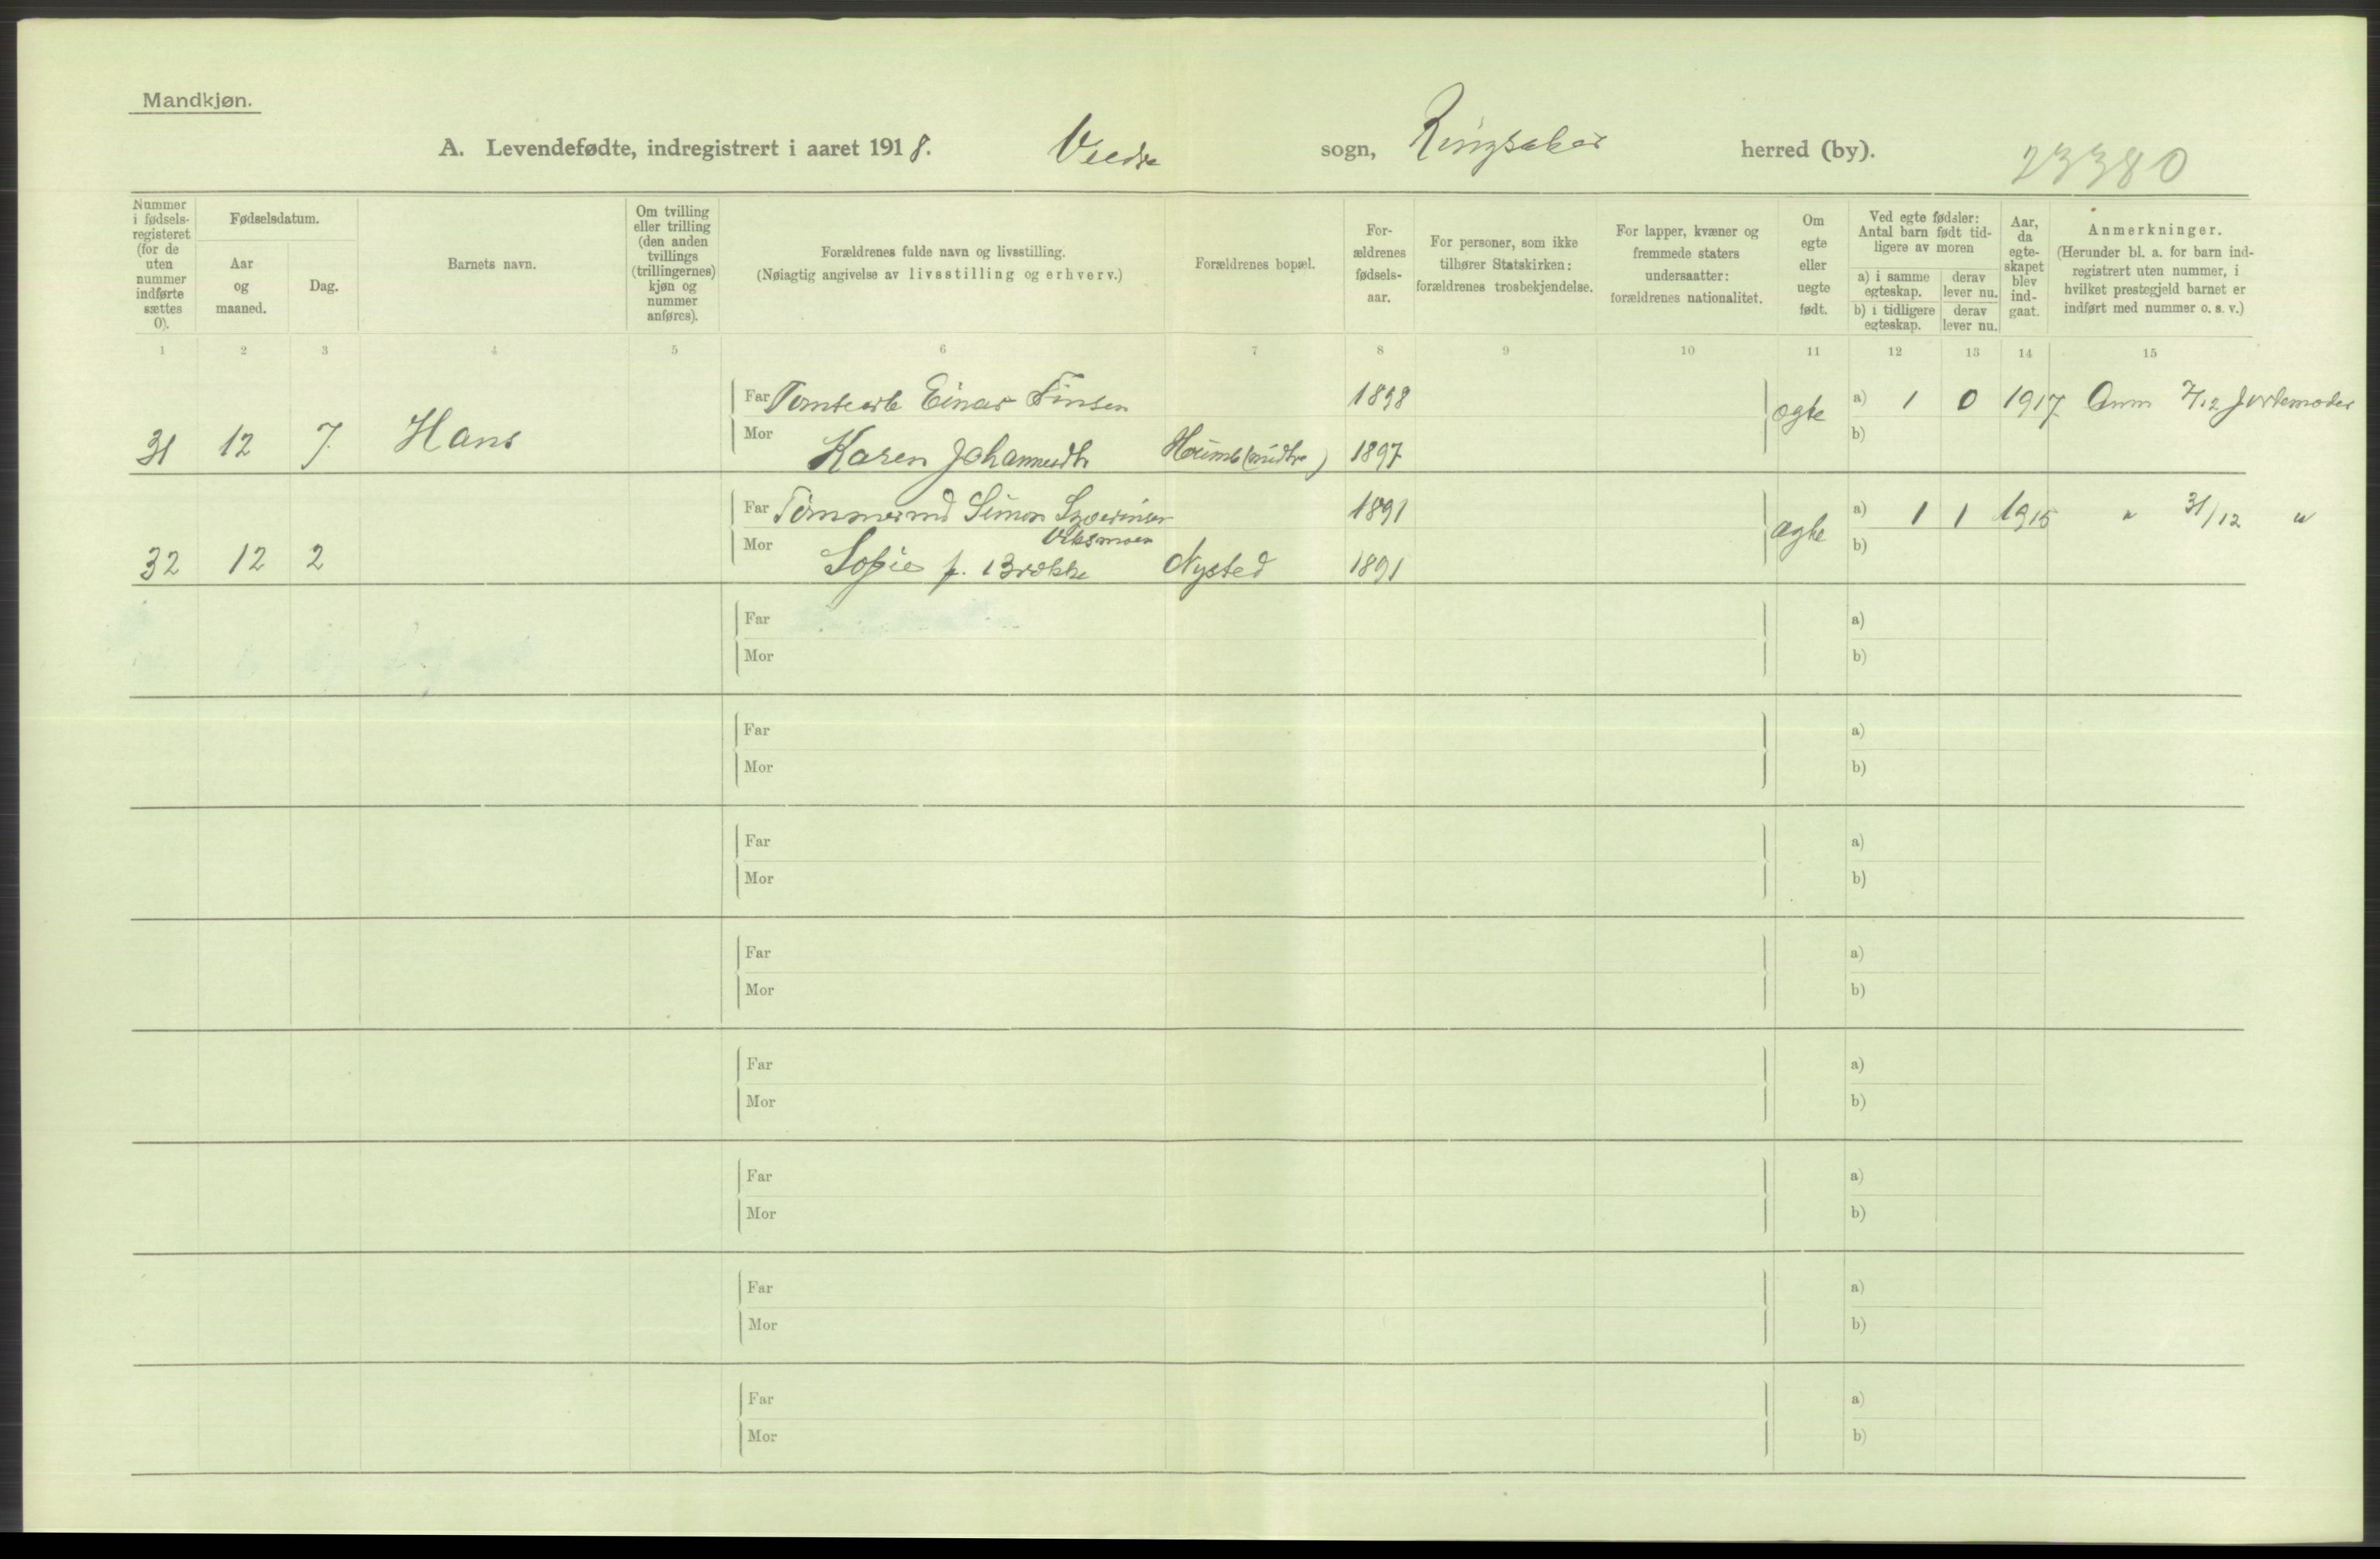 Mandkjøn.
A. Levendefødte, indregistrert i aaret 1918. sogn, Ringsaker herred (by).
23380
Nummer i fødsels-registeret (for de uten nummer indførte sættes 0).
Fødselsdatum.
Aar og maaned.
Dag.
Barnets navn.
Om tvilling eller trilling (den anden tvillings (trillingernes) kjøn og nummer anføres).
Forældrenes fulde navn og livsstilling.
(Nøiagtig angivelse av livsstilling og erhverv.)
Forældrenes bopæl.
For-ældrenes fødsels-aar.
For personer, som ikke tilhører Statskirken: forældrenes trosbekjendelse.
For lapper, kvæner og fremmede staters undersaatter: forældrenes nationalitet.
Om egte eller uegte født.
Ved egte fødsler: Antal barn født tid-ligere av moren
a) i samme egteskap.
derav lever nu.
b) i tidligere egteskap.
derav lever nu.
Aar, da egte-skapet blev ind-gaat.
Anmerkninger.
(Herunder bl. a. for barn ind-registrert uten nummer, i hvilket prestegjeld barnet er indført med nummer o. s. v.)
1 2 3 4 5 6 7 8 9 10 11 12 13 14 15
Far Einar Finsen 1898 a) 1 0 1917 Anm 7/12 Jordemoder
31 12 7. Hans Mor Karen Johannesdtr (midtre) 1897 ægte b)
Far Simon 1891 a) 1 1 1915 " 31/12 "
32 12 2 Mor Sofie f. Brække Nysted 1891 ægte b)
Far a)
Mor b)
Far a)
Mor b)
Far a)
Mor b)
Far a)
Mor b)
Far a)
Mor b)
Far a)
Mor b)
Far a)
Mor b)
Far a)
Mor b)